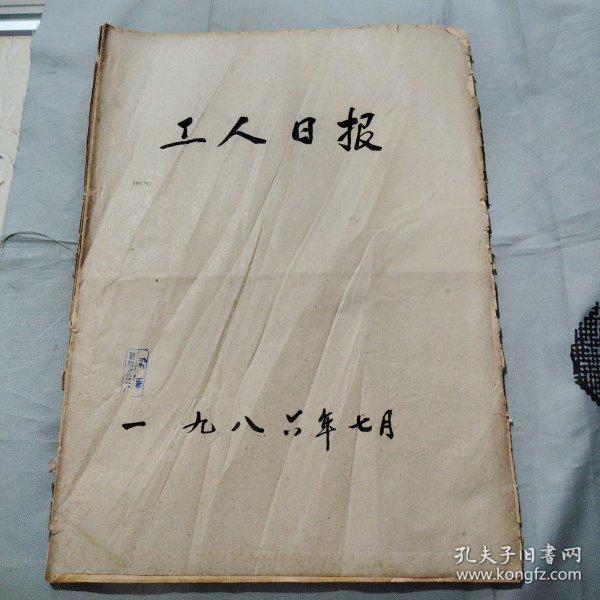 工人日报
一九八六年七月
孔夫子旧书网
www.kongfz.com